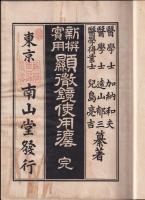 醫學士 加納和夫
醫學士 遠山郁三
醫學得業士 兒島亮吉
纂著
新撰
實用
顯微鏡使用濃 完
東京 南山堂發行